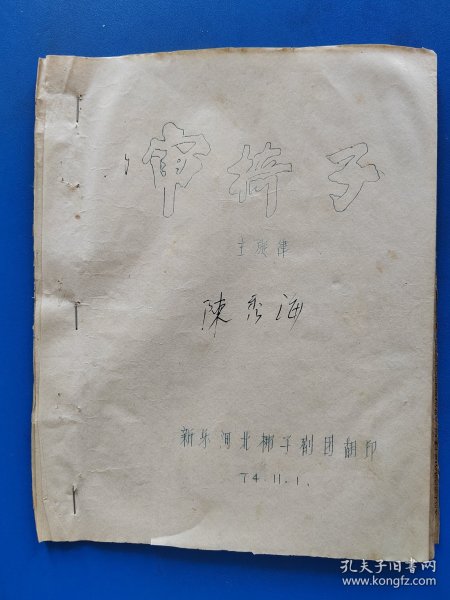 审椅子
主旋律
陳秀海
新乐河北梆子剧团翻印
74.11.1.
孔夫子旧书网
www.kongfz.com